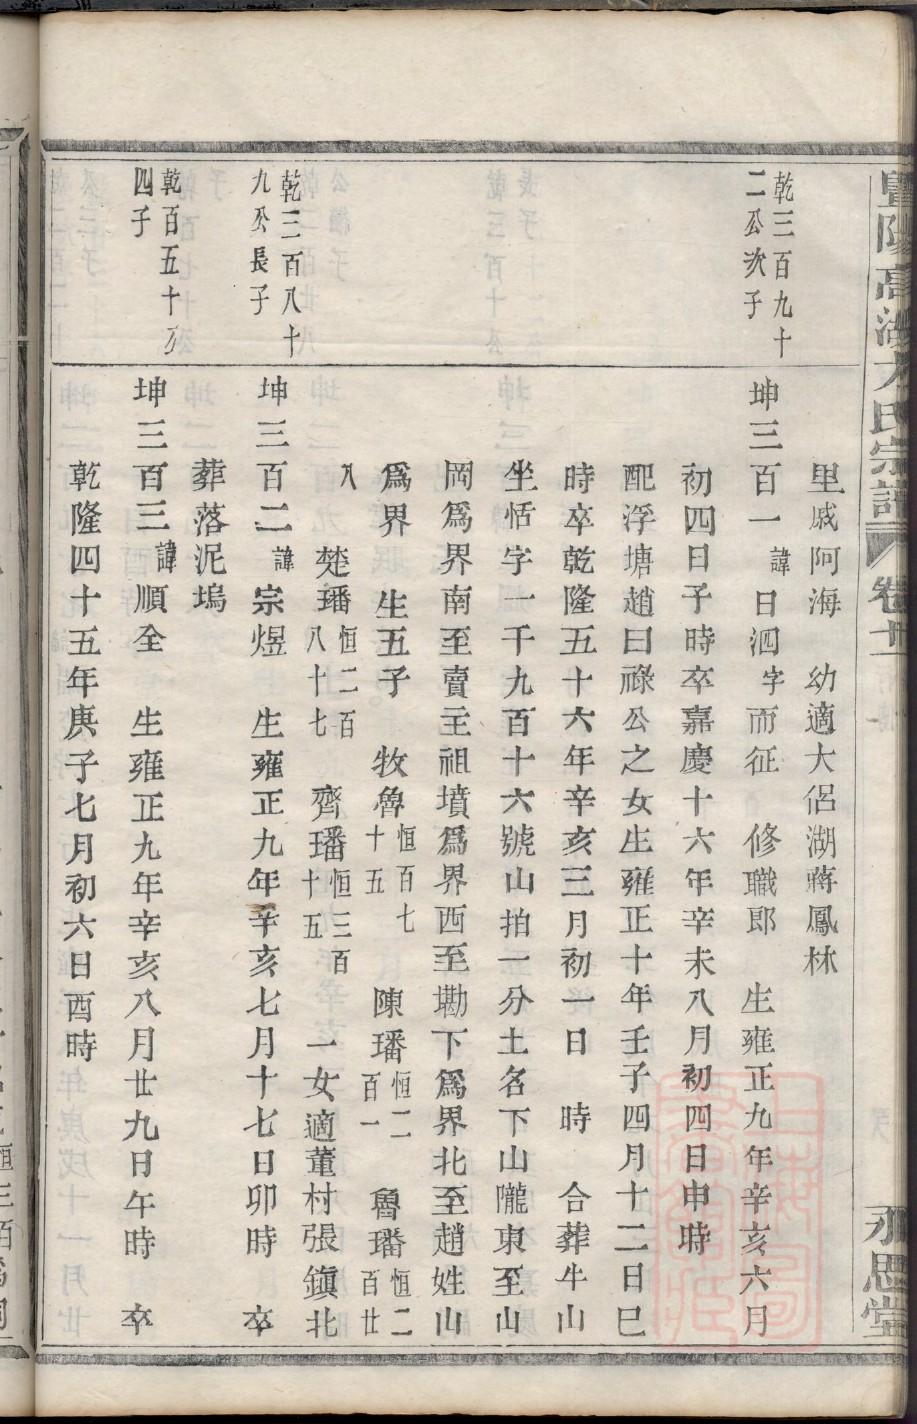 暨陽高湖方氏宗譜 卷十
永思堂
里戚阿海 幼適大侶湖蔣鳳林
乾三百九十二公次子
坤三百一 諱日泗 字而征 修職郎 生雍正九年辛亥六月
初四日子時卒嘉慶十六年辛未八月初四日申時
配浮塘趙曰祿公之女生雍正十年壬子四月十二日巳
時卒乾隆五十六年辛亥三月初一日 時 合葬牛山
坐恬字一千九百十六號山拍一分土名下山隴東至山
岡爲界南至賣主祖墳爲界西至墈下爲界北至趙姓山
爲界 生五子 牧魯恒百七十五 陳璠恒二百一 魯璠恒二百廿
八 楚璠恒二百八十七 齊璠恒三百十五 一女適董村張鎮北
乾三百八十九公長子
坤三百二 諱宗煜 生雍正九年辛亥七月十七日卯時 卒
葬落泥塢
乾百五十公四子
坤三百三 諱順全 生雍正九年辛亥八月廿九日午時 卒
乾隆四十五年庚子七月初六日酉時